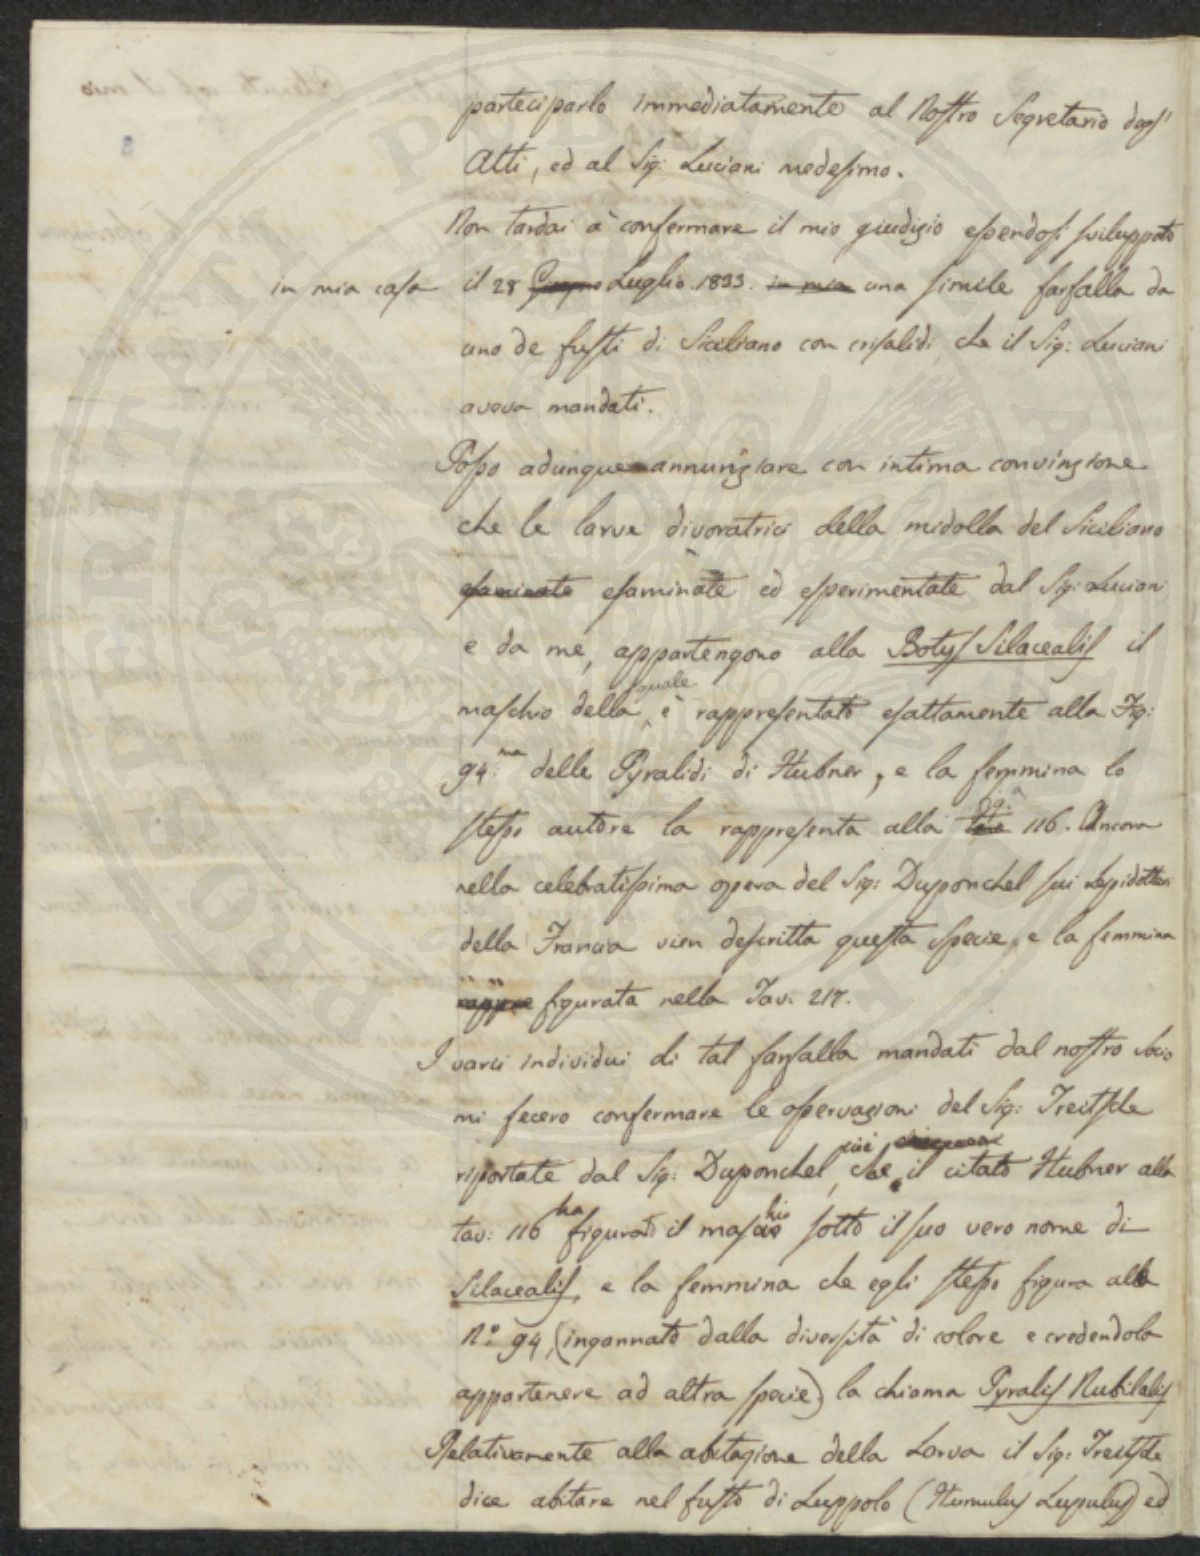 parteciparlo immediatamente al Nostro Segretario degl'
Atti, ed al Sig: Luciani medesimo.
Non tardai à confermare il mio giudizio essendosi sviluppato
in mia casa il 28 Giugno Luglio 1833. in mia una simile farfalla da
uno de fusti di Siciliano con crisalidi che il Sig: Luciani
aveva mandati.
Posso adunque annunziare con intima convinzione
che le larve divoratrici della midolla del Siciliano
esaminate esaminate ed esperimentate dal Sig: Luciani
e da me, appartengono alla Botys Silacealis il
quale
maschio della è rappresentato esattamente alla Fig:
94:ma delle Pyralidi di Hubner, e la femmina lo
stesso autore la rappresenta alla fig.a 116. Ancora
nella celebratissima opera del Sig: Duponchel sui Lepidotteri
della Francia vien descritta questa specie, e la femmina
rappre figurata nella Tav: 217.
I varii individui di tal farfalla mandati dal nostro Socio
mi fecero confermare le osservazioni del Sig: Treitschke
riportate dal Sig: Duponchel, cioè che il citato Hubner alla
tav: 116 ha figurato il maschio sotto il suo vero nome di
Silacealis, e la femmina che egli stesso figura alla
N.° 94, (ingannato dalla diversità di colore e credendola
appartenere ad altra specie) la chiama Pyralis Nubilalis
Relativamente alla abitazione della Larva il Sig: Treitschke
dice abitare nel fusto di Luppolo (Humulus Lupulus) ed
PROSPERITATI PUBLICAE